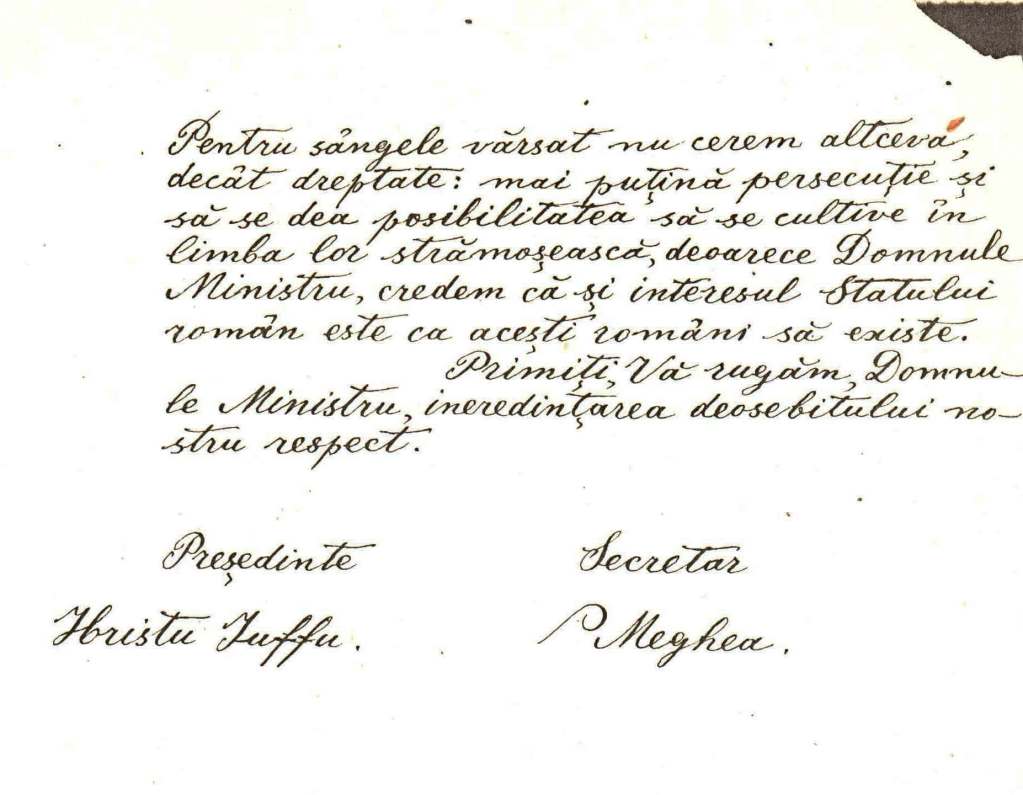 Pentru sângele vărsat nu cerem altceva,
decât dreptate: mai puţină persecuţie şi
să se dea posibilitatea să se cultive în
limba lor strămoşească, deoarece Domnule
Ministru, credem că şi interesul Statului
român este ca aceşti români să existe.
Primiţi, Vă rugăm, Domnu-
le Ministru, incredinţarea deosebitului no-
stru respect.
Preşedinte Secretar
Hristu Iuffu. P Meghea.